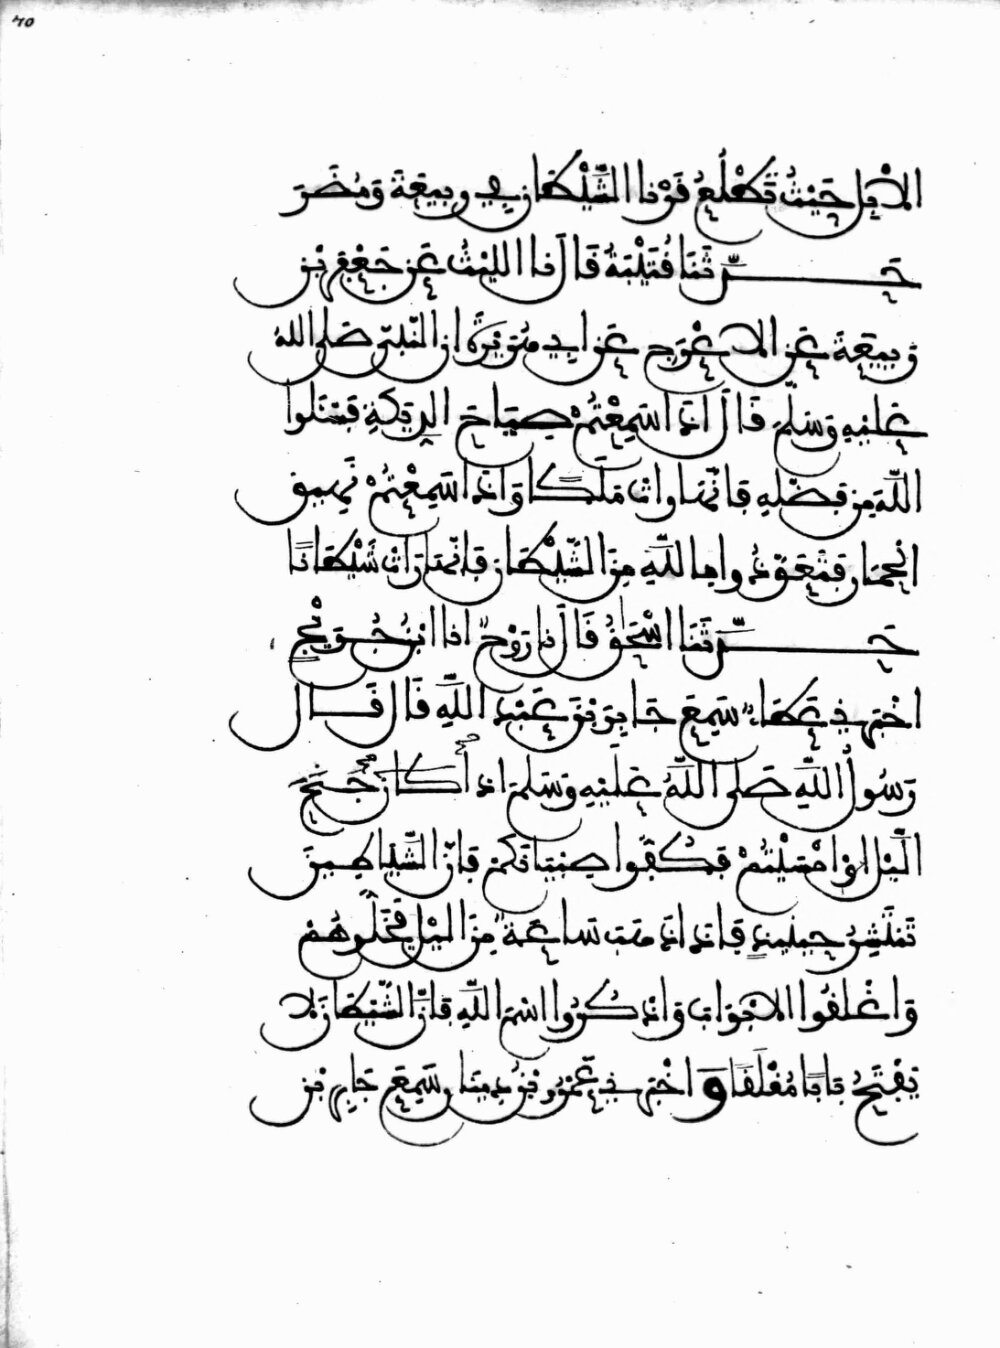 70
الْإِبِلِ حَيْثُ تَطْلُعُ قَرْنَا الشَّيْطَانِ فِي رَبِيعَةَ وَمُضَرَ
حَدَّثَنَا قُتَيْبَةُ قَالَ نا اللَّيْثُ عَنْ جَعْفَرِ بْنِ
رَبِيعَةَ عَنِ الْاعْرَجِ عَنْ ابِي هُرَيْرَةَ انَّ النَّبِيَّ صَلَّى اللهُ
عَلَيْهِ وَسَلَّمَ قَالَ اذَا سَمِعْتُمْ صِيَاحَ الدِّيَكَةِ فَسَلُوا
اللَّهَ مِنْ فَضْلِهِ فَانَّهَا رَاتْ مَلَكًا وَاذَا سَمِعْتُمْ نَهِيقَ
الْحِمَارِ فَتَعَوَّذُوا بِاللَّهِ مِنَ الشَّيْطَانِ فَانَّهَا رَاتْ شَيْطَانًا
حَدَّثَنَا اسْحَقُ قَالَ نا رَوْحٌ انا ابْنُ جُرَيْجٍ
اخْبَرَنِي عَطَاءٌ سَمِعَ جَابِرَ بْنَ عَبْدِ اللَّهِ قَالَ قَالَ
رَسُولُ اللَّهِ صَلَّى اللَّهُ عَلَيْهِ وَسَلَّمَ اذَا كَانَ جُنْحُ
اللَّيْلِ اوْ امْسَيْتُمْ فَكُفُّوا صِبْيَانَكُمْ فَانَّ الشَّيَاطِينَ
تَنْتَشِرُ حِينَئِذٍ فَاذَا ذَهَبَتْ سَاعَةٌ مِنَ اللَّيْلِ فَخَلُّوهُمْ
وَاغْلِقُوا الْابْوَابَ وَاذْكُرُوا اسْمَ اللَّهِ فَانَّ الشَّيْطَانَ لَا
يَفْتَحُ بَابًا مُغْلَقًا وَاخْبَرَنِي عَمْرُو بْنُ دِينَارٍ سَمِعَ جَابِرَ بْنَ